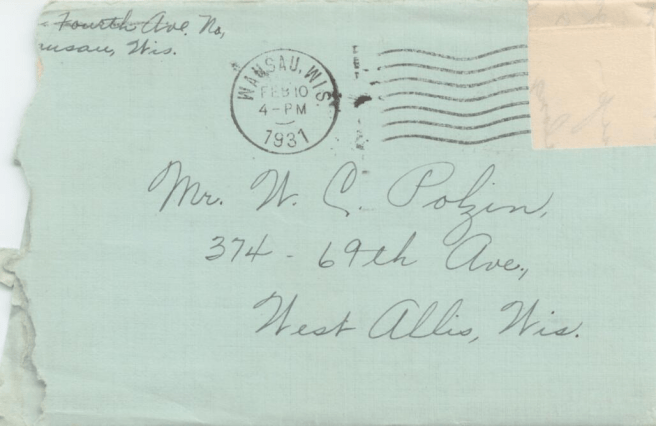 Fourth Ave. No,
Wis.
WAUSAU, WIS.
FEB 10
4-PM
1931
Mr. W. C. Polzin,
374 - 69th Ave.,
West Allis, Wis.